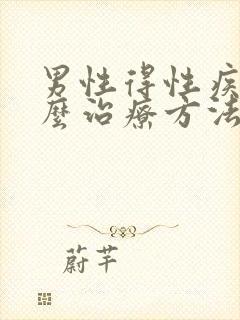 男性得性疾
麼治療方法
蔚芊